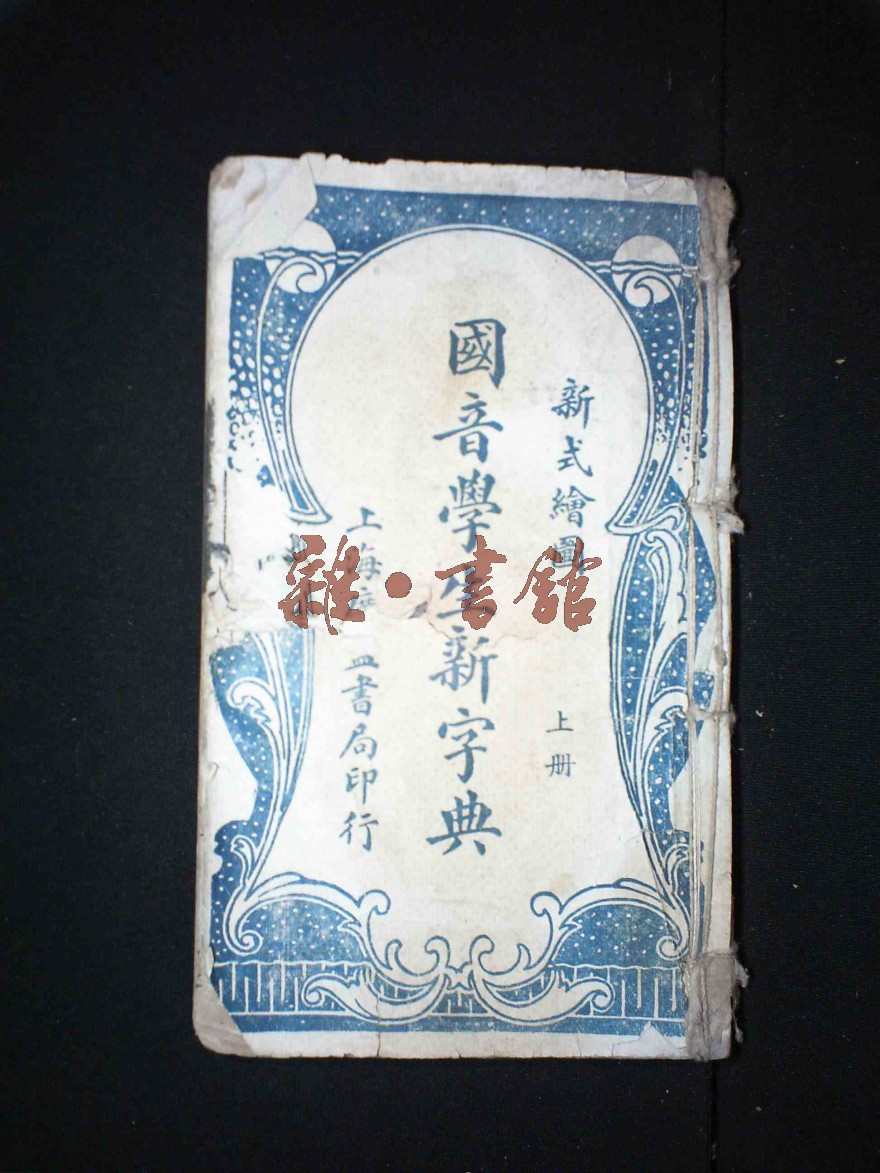 新式繪圖
上册
國音學生新字典
上海廣益書局印行
雜·書舘